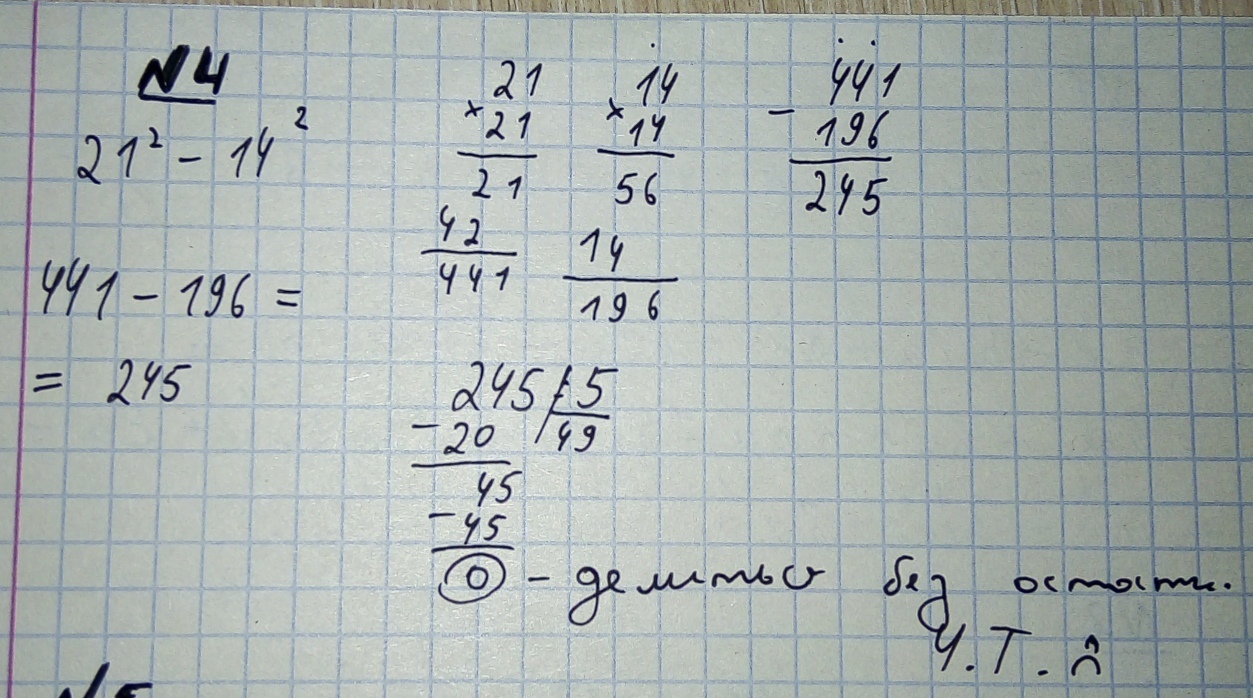 №4
21² - 14²
441 - 196 =
= 245
21
× 21
21
42
441
14
× 14
56
14
196
441
- 196
245
245 | 5
- 20 49
45
- 45
0 - делиться без остатк.
Ч.Т.Д
№5